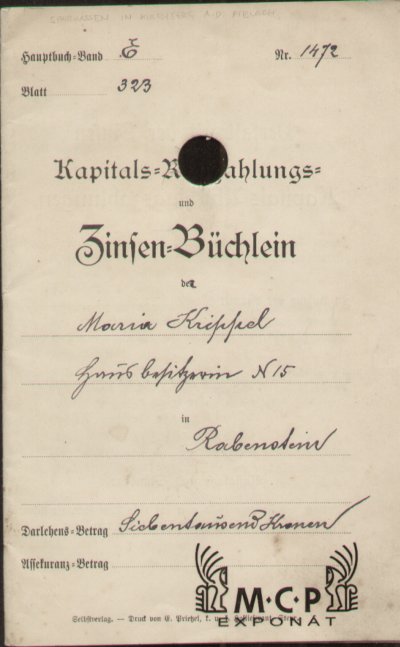 SPARKASSEN IN KIRCHBERG A.D. PIELACH
Hauptbuch-Band E Nr. 1472
Blatt 323
Kapitals-R zahlungs-
und
Zinsen-Büchlein
der
Maria Krippel
Hausbesitzerin N 15
in
Rabenstein
Darlehens-Betrag Siebentausend Kronen
Assekuranz-Betrag
M·C·P
EXPONÁT
Selbstverlag. — Druck von E. Prietzel, k. u. k. Hoflieferant, Steyr.